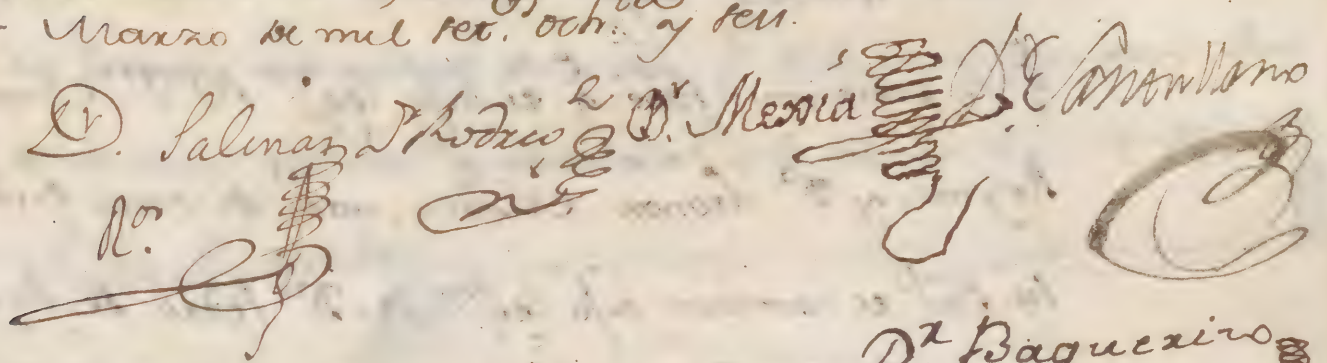 Marzo de mil set.os och.ta y seis.
Dr. Salinas Dr Rodrig Dr. Mexia Dr Santullano
R.or
Dr Baqueriz